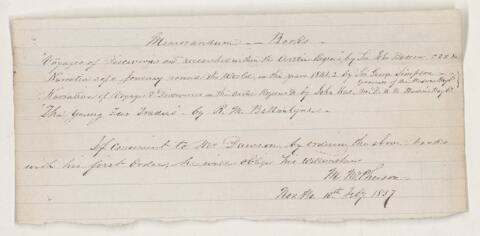 Memorandum — Books —
"Voyages of Discovery and Research within the Arctic Regions" by Sir John Barrow
"Narrative of a Journey round the World, in the years 1841, 2 by Sir George Simpson —
Governor of the Hudson's Bay Co
Narrative of Voyages & Discoveries in the Arctic Regions &c by John Rae, M.D. &c Hudson's Bay Co
"The Young Fur Traders" by R. M. Ballantyne —
If convenient to Mr Dawson, by ordering the above books
with his first orders, he will oblige his wellwisher
M. McPherson
10th Feby 1857